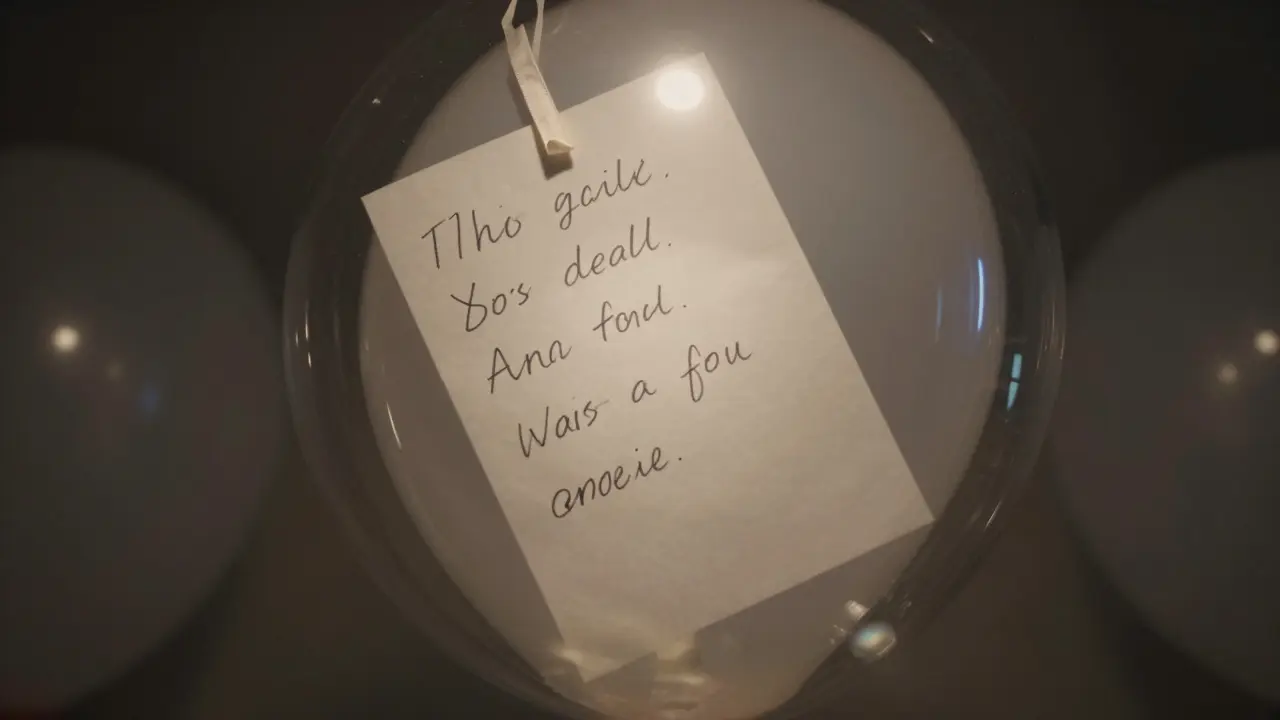 Tlhio gailk.
Yo's deall.
Ana ford.
Wais a fou
anoeie.